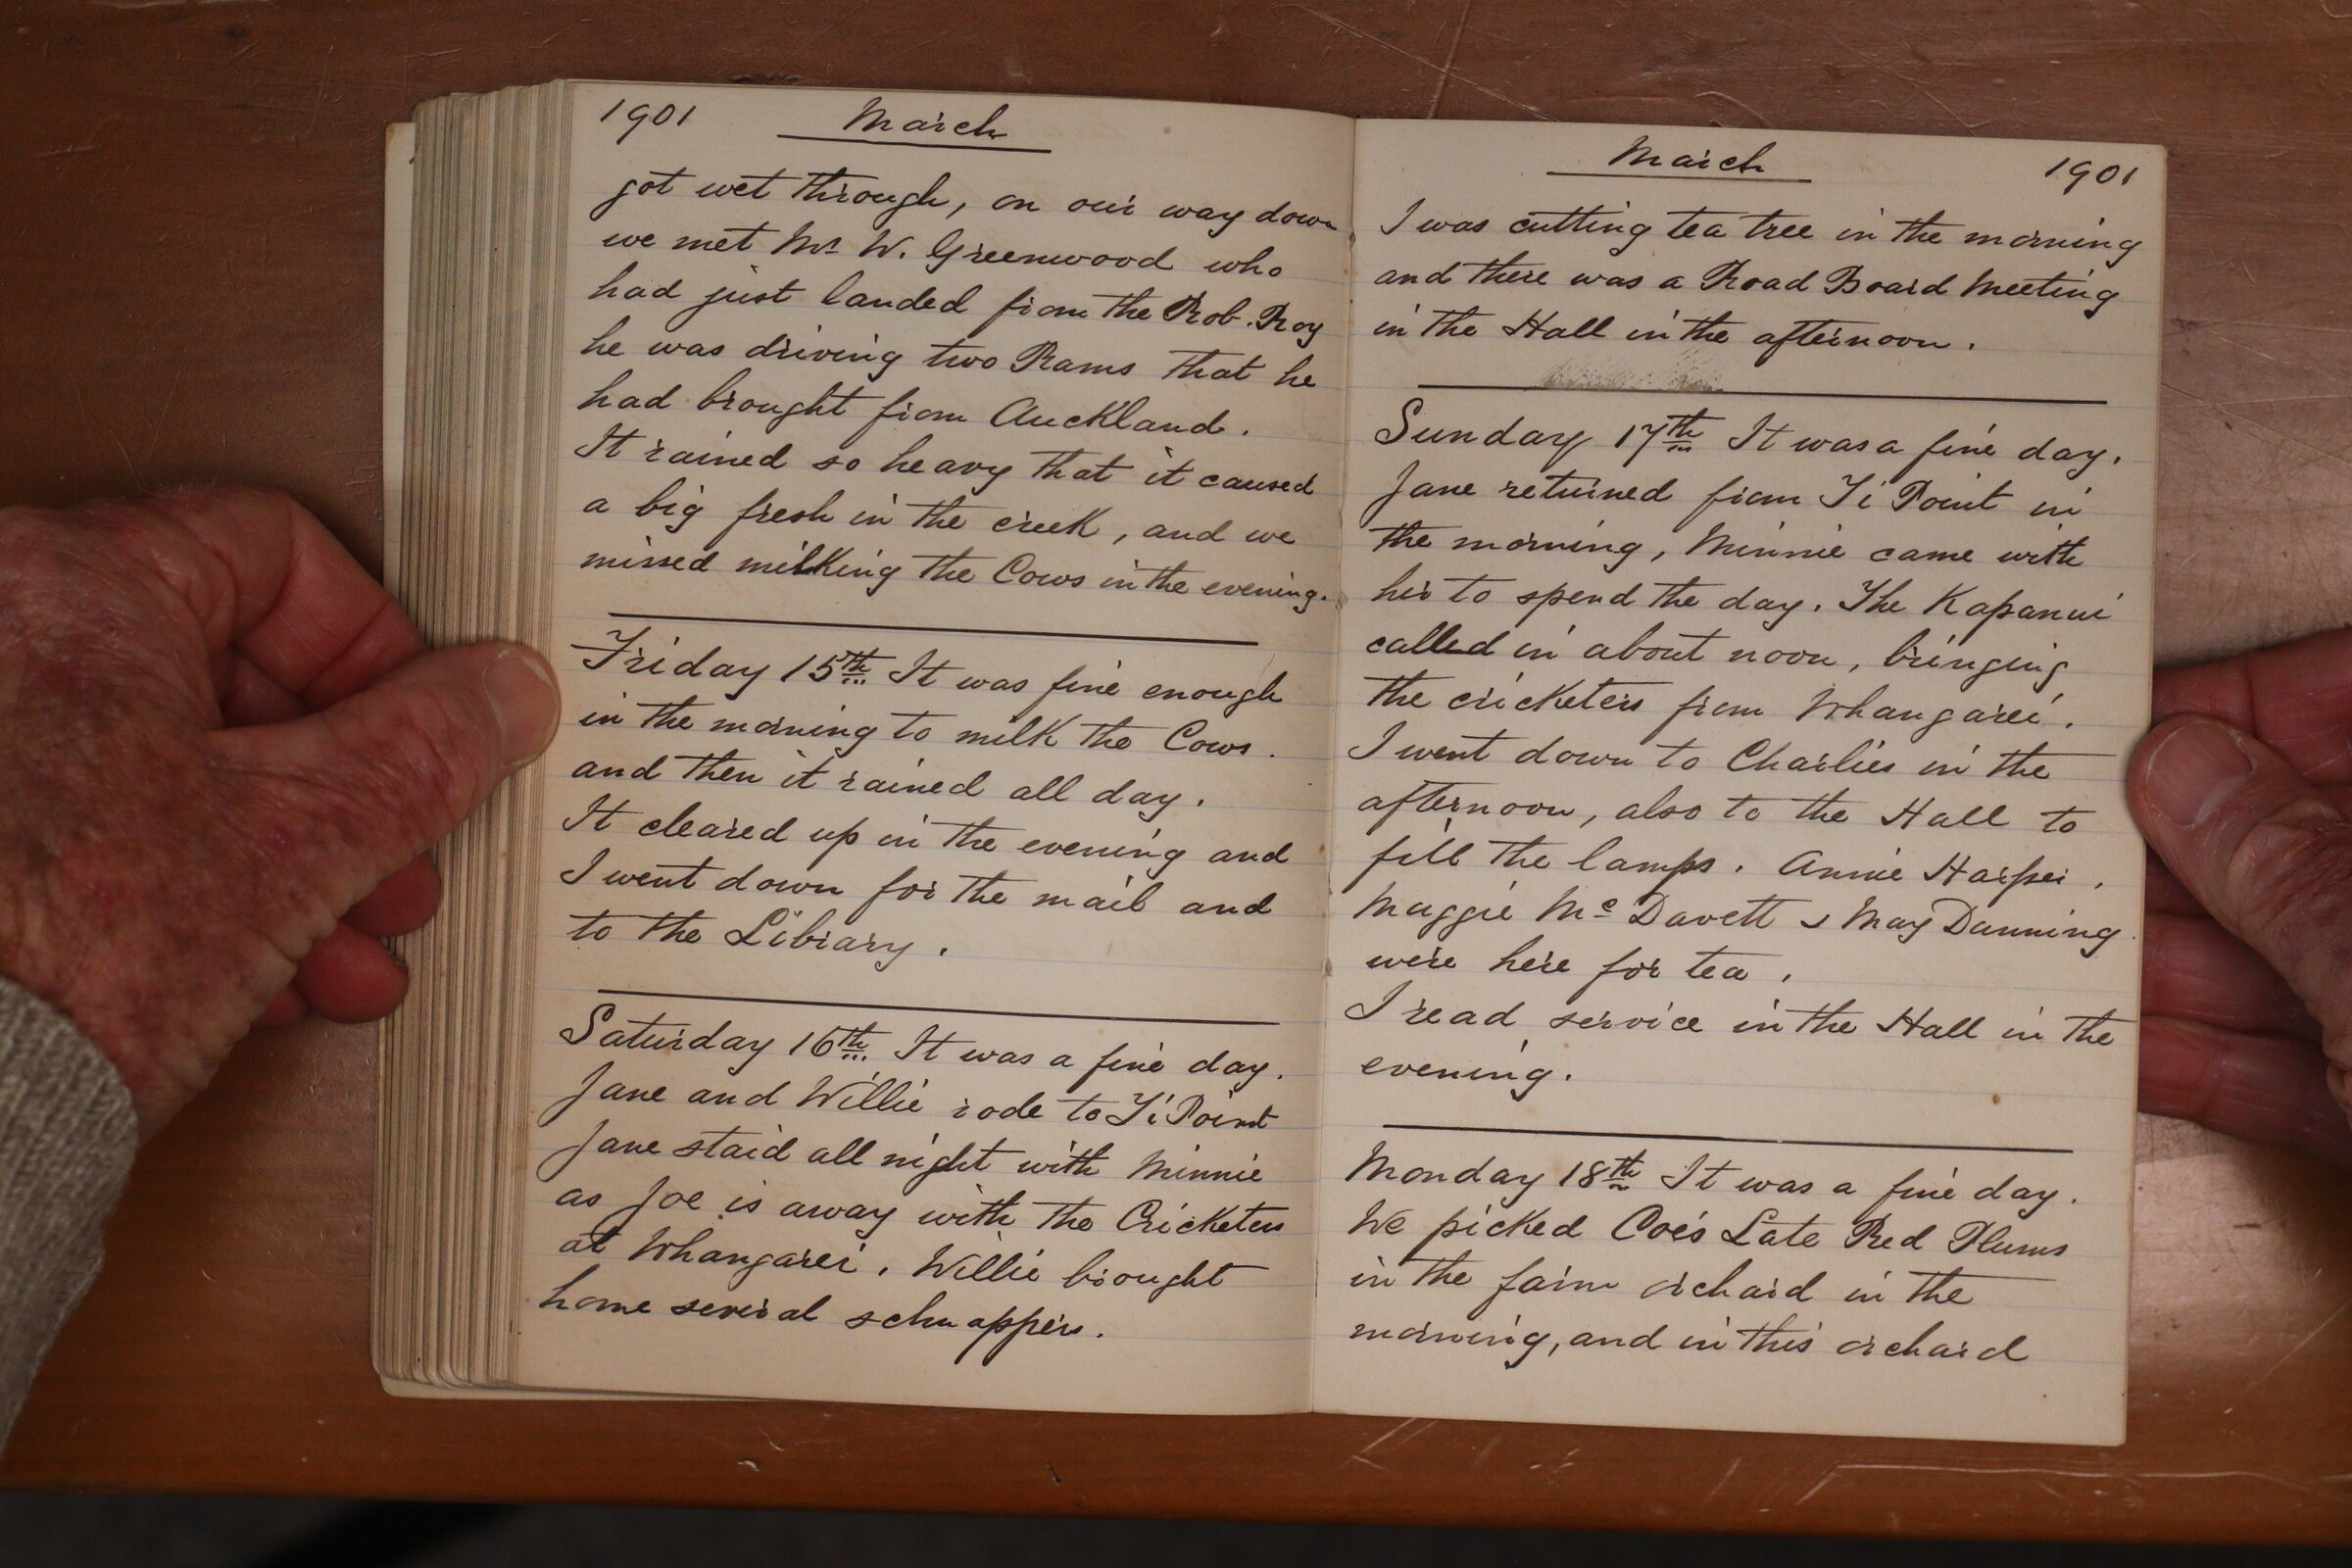 1901 March
got wet through, on our way down
we met Mr W. Greenwood who
had just landed from the Rob. Roy
he was driving two Rams that he
had brought from Auckland.
It rained so heavy that it caused
a big fresh in the creek, and we
missed milking the Cows in the evening.
Friday 15th It was fine enough
in the morning to milk the Cows.
and then it rained all day.
It cleared up in the evening and
I went down for the mail and
to the Library.
Saturday 16th It was a fine day.
Jane and Willie rode to Ti Point
Jane staid all night with Minnie
as Joe is away with the Cricketers
at Whangarei. Willie brought
home several schnappers.
March 1901
I was cutting tea tree in the morning
and there was a Road Board Meeting
in the Hall in the afternoon.
Sunday 17th It was a fine day.
Jane returned from Ti Point in
the morning, Minnie came with
her to spend the day. The Kapanui
called in about noon, bringing
the cricketers from Whangarei.
I went down to Charlies in the
afternoon, also to the Hall to
fill the lamps. Annie Harper.
Maggie Mc Davett & May Dunning
were here for tea.
I read service in the Hall in the
evening.
Monday 18th It was a fine day.
We picked Coe's Late Red Plums
in the farm orchard in the
morning, and in this orchard